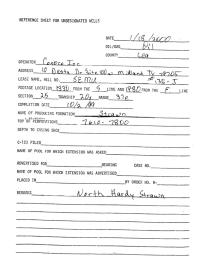 REFERENCE SHEET FOR UNDESIGNATED WELLS
DATE 1/18/2000
OIL/GAS Oil
COUNTY Lea
OPERATOR Conoco Inc
ADDRESS 10 Desta Dr Ste 100 Midland Tx 79705
LEASE NAME, WELL NO. SEMU
FOOTAGE LOCATION 1980 FROM THE S LINE AND 1980 FROM THE E LINE
SECTION 25 TOWNSHIP 20s RANGE 37e
COMPLETION DATE 10/2
NAME OF PRODUCING FORMATION Strawn
TOP OF PERFORATIONS 7610-7800
DEPTH TO CASING SHOE
C-123 FILED
NAME OF POOL FOR WHICH EXTENSION WAS ASKED
ADVERTISED FOR HEARING CASE NO.
NAME OF POOL FOR WHICH EXTENSION WAS ADVERTISED
PLACED IN BY ORDER NO. R-
REMARKS North Hardy Strawn